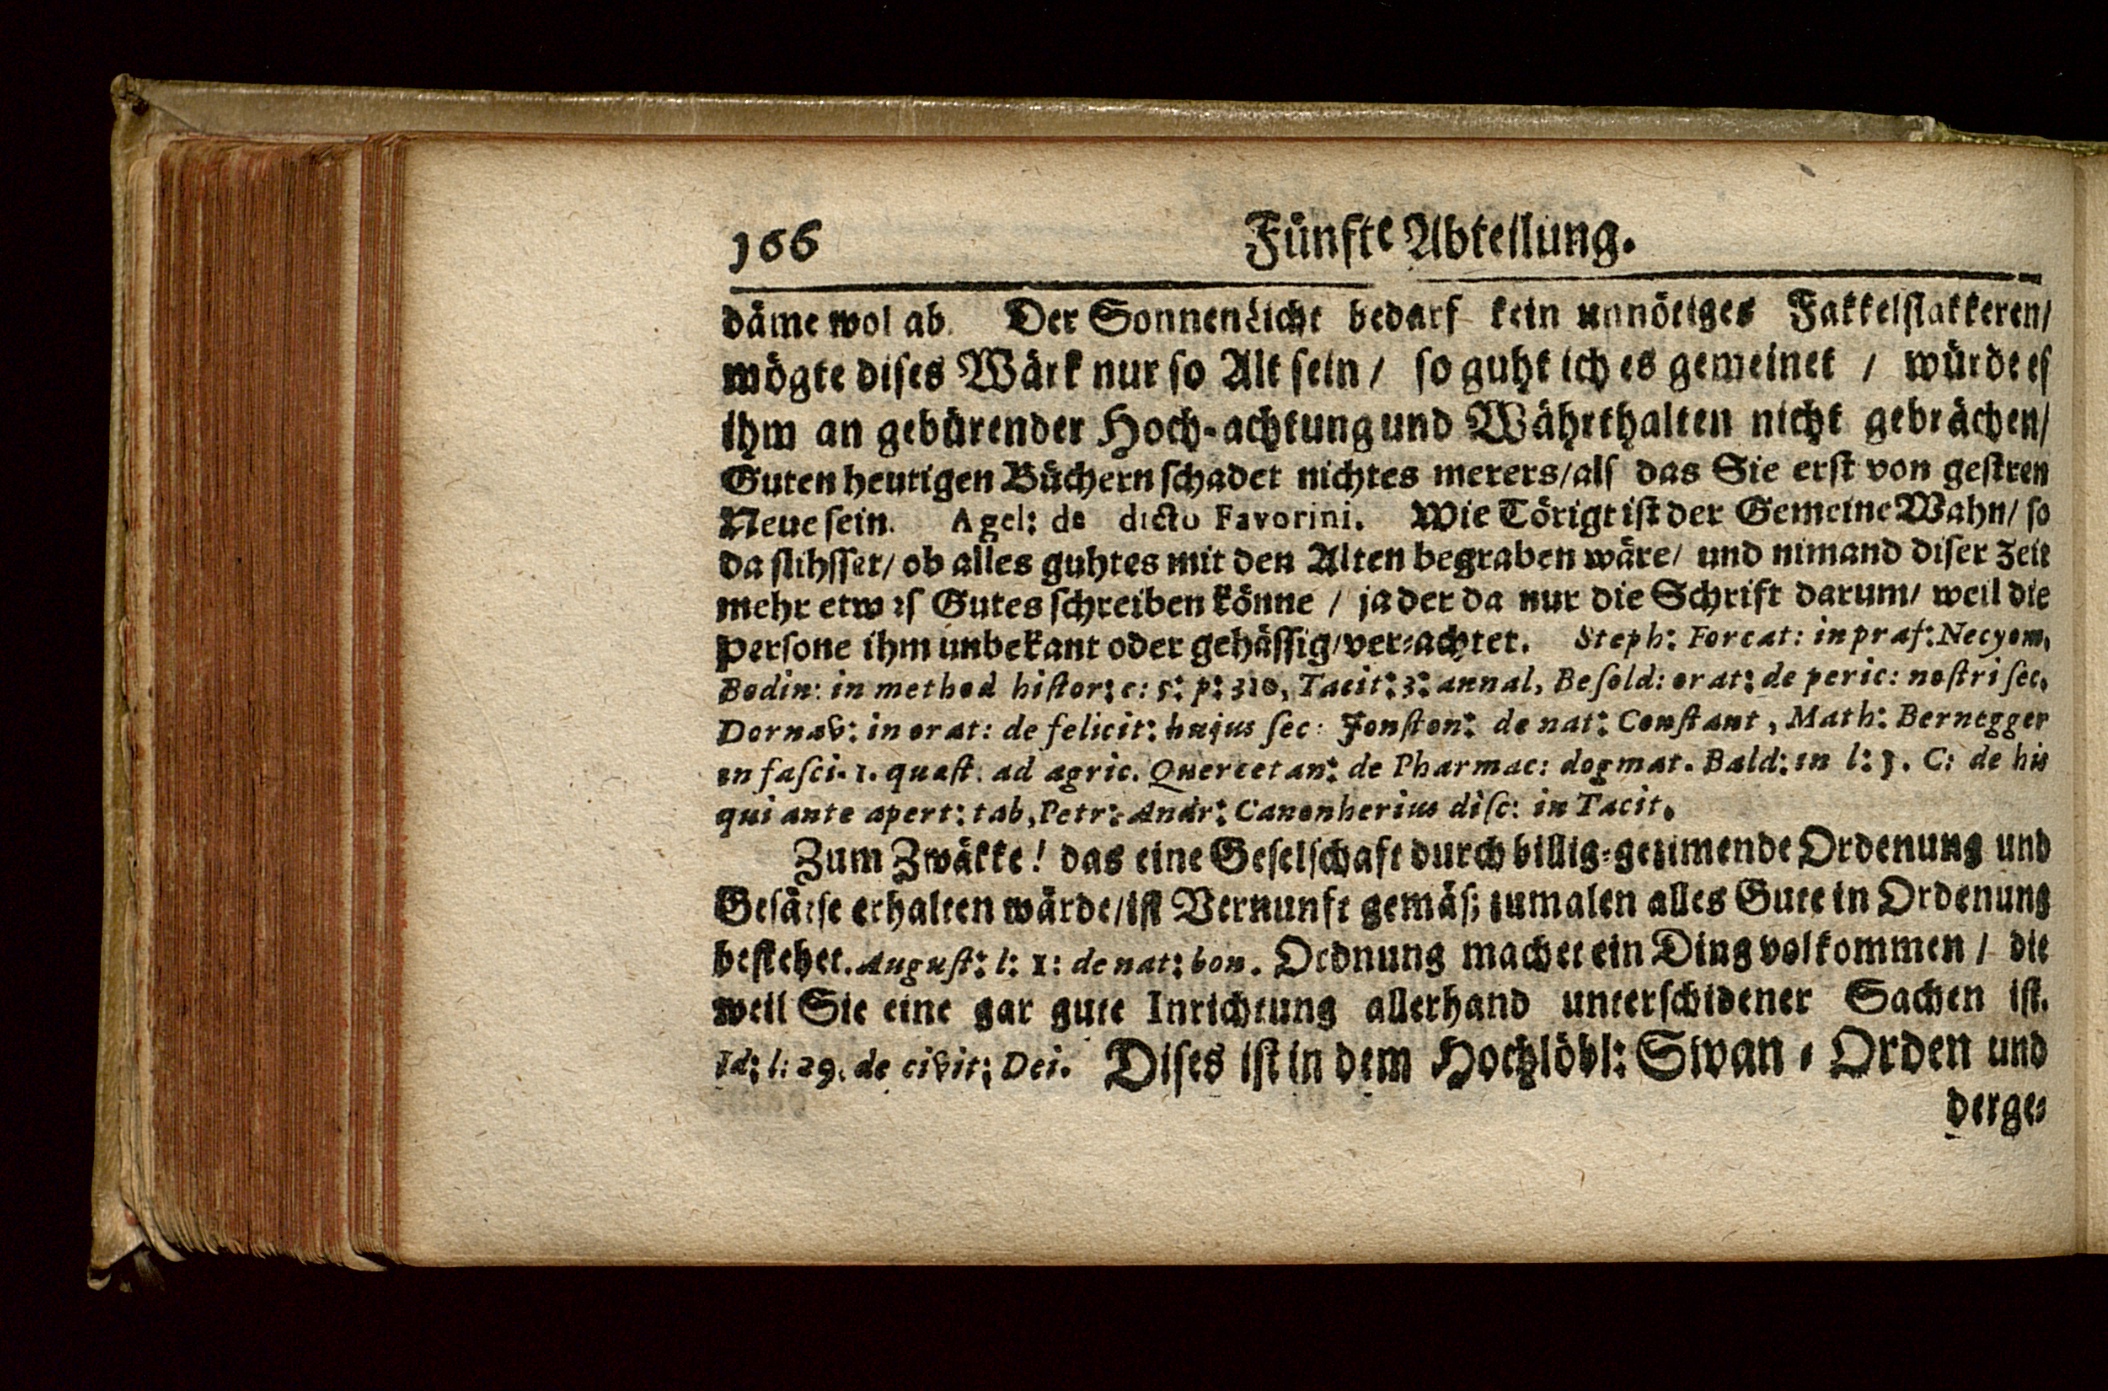 166 Fünfte Abteilung.
däme wol ab. Der Sonnen Licht bedarf kein unnötiges Fakkelflakkeren/
mögte dises Wärk nur so Alt sein / so guht ich es gemeinet / würde es
ihm an gebürender Hoch-achtung und Währthalten nicht gebrächen/
Guten heutigen Büchern schadet nichtes merers/als das Sie erst von gestren
Neue sein. Agel: de dicto Favorini. Wie Törigt ist der Gemeine Wahn/ so
da slihsset/ ob alles guhtes mit den Alten begraben wäre/ und nimand diser Zeit
mehr etwas Gutes schreiben könne / ja der da nur die Schrift darum/ weil die
Persone ihm unbekant oder gehässig/ver-achtet. Steph: Forcat: in præf: Necyom,
Bodin: in method histor: c: 5: p: 310, Tacit: 3: annal, Besold: orat: de peric: nostri sec,
Dornav: in orat: de felicit: hujus sec: Jonston: de nat: Constant, Math: Bernegger
in fasci. 1. quæst. ad agric. Quercetan: de Pharmac: dogmat. Bald: in l: 3. C: de his
qui ante apert: tab, Petr: Andr: Canonherius disc: in Tacit.
Zum Zwäkke! das eine Geselschaft durch billig-gezimende Ordenung und
Gesätse erhalten wärde/ist Vernunft gemäs; zumalen alles Gute in Ordenung
bestehet. August: l: 1: de nat: bon. Ordnung machet ein Ding volkommen / die
weil Sie eine gar gute Inrichtung allerhand unterschidener Sachen ist.
Id: l: 29. de civit: Dei. Dises ist in dem Hochlöbl: Swan-Orden und
derge-